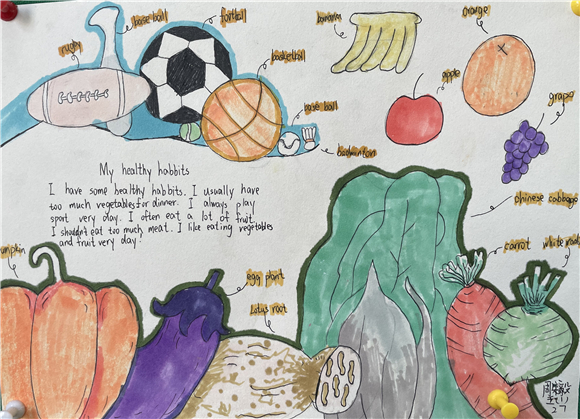 base ball
football
rugby
basketball
base ball
badminton
banana
orange
apple
grape
My healthy habbits
I have some healthy habbits. I usually have
too much vegetables for dinner. I always play
sport very day. I often eat a lot of fruit.
I shouldn't eat too much meat. I like eating vegetables
and fruit very day!
chinese cabbage
carrot
white radish
egg plant
Lotus root
umpkin